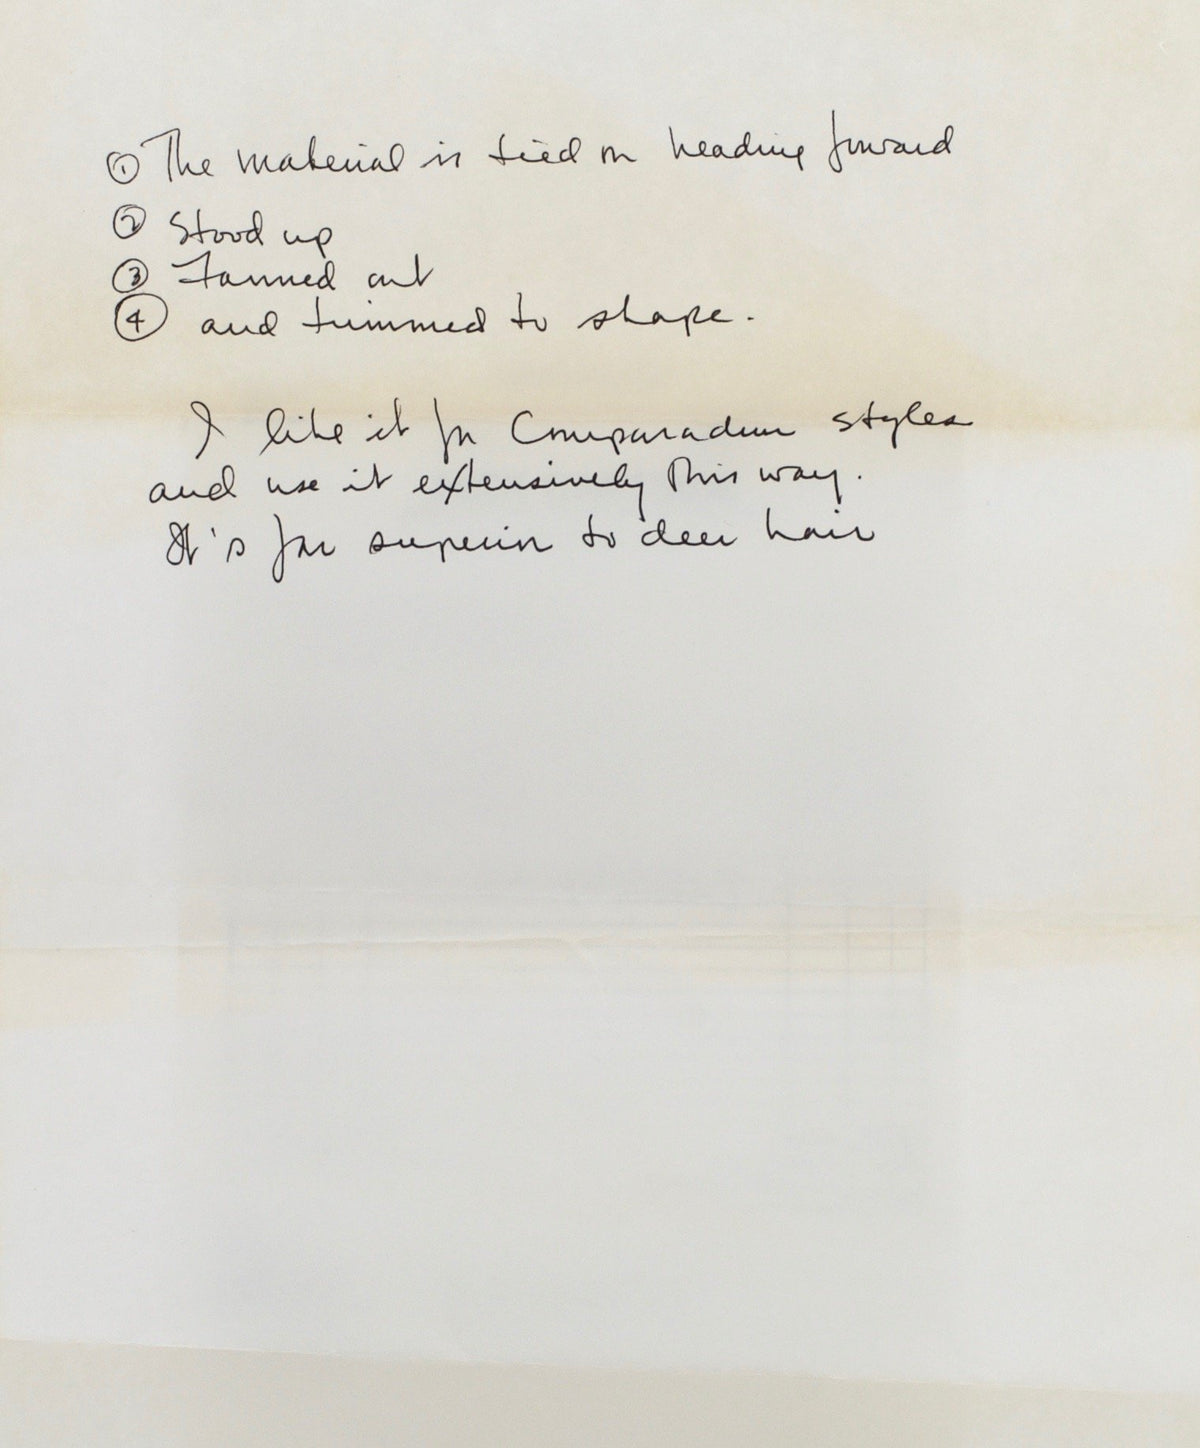 ① The material is tied on heading forward
② Stood up
③ Fanned out
④ and trimmed to shape.
I like it for Comparadun styles
and use it extensively this way.
It's far superior to deer hair